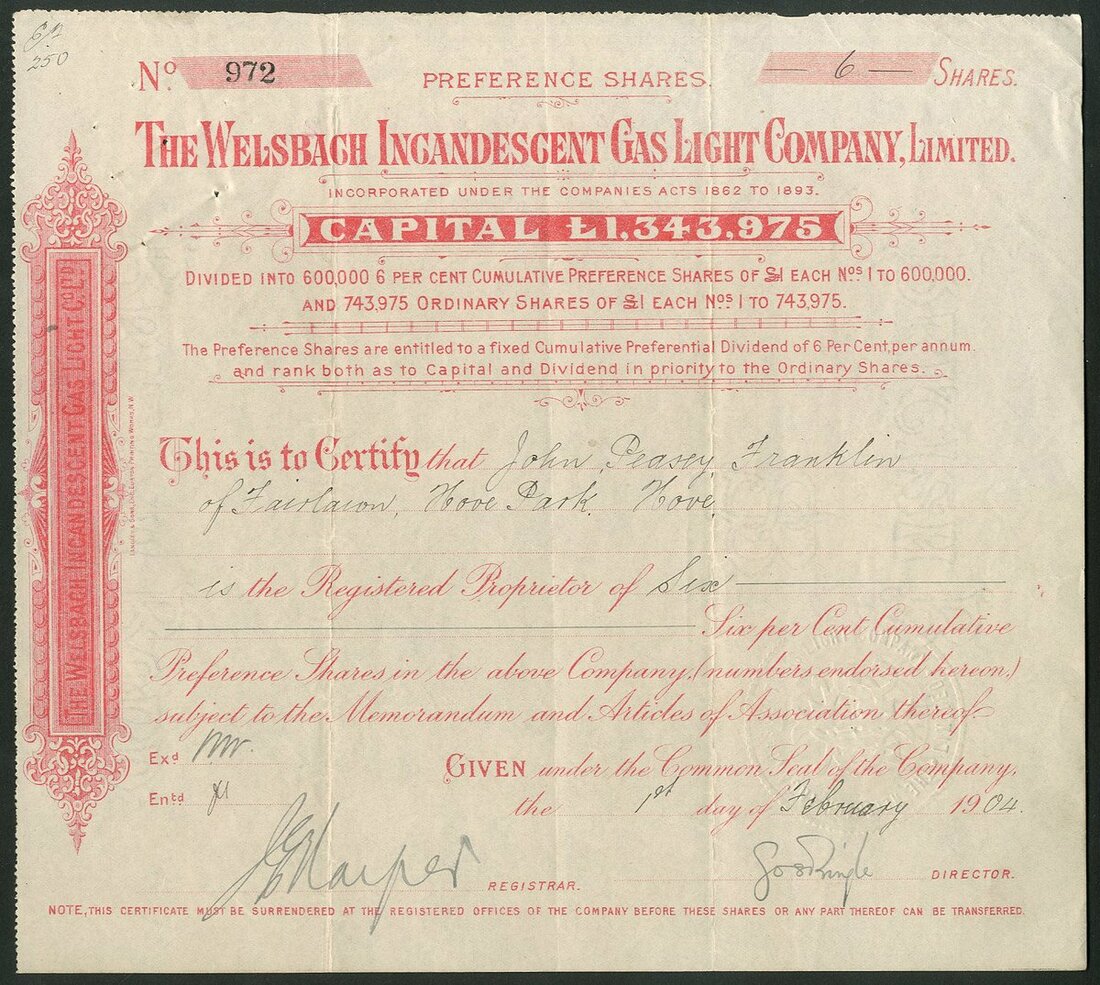 250
No. 972 PREFERENCE SHARES. — 6 — SHARES.
THE WELSBACH INCANDESCENT GAS LIGHT COMPANY, LIMITED.
INCORPORATED UNDER THE COMPANIES ACTS 1862 TO 1893.
CAPITAL £1,343,975
DIVIDED INTO 600,000 6 PER CENT CUMULATIVE PREFERENCE SHARES OF £1 EACH NOS 1 TO 600,000.
AND 743,975 ORDINARY SHARES OF £1 EACH NOS 1 TO 743,975.
The Preference Shares are entitled to a fixed Cumulative Preferential Dividend of 6 Per Cent, per annum.
and rank both as to Capital and Dividend in priority to the Ordinary Shares.
THE WELSBACH INCANDESCENT GAS LIGHT CO. LTD.
This is to Certify that John Peasey Franklin
of Fairlawn, Hove Park, Hove,
is the Registered Proprietor of Six
Six per Cent Cumulative
Preference Shares in the above Company, (numbers endorsed hereon,)
subject to the Memorandum and Articles of Association thereof
Exd
GIVEN under the Common Seal of the Company,
Entd
the 1st day of February 1904.
REGISTRAR.
DIRECTOR.
NOTE, THIS CERTIFICATE MUST BE SURRENDERED AT THE REGISTERED OFFICES OF THE COMPANY BEFORE THESE SHARES OR ANY PART THEREOF CAN BE TRANSFERRED.